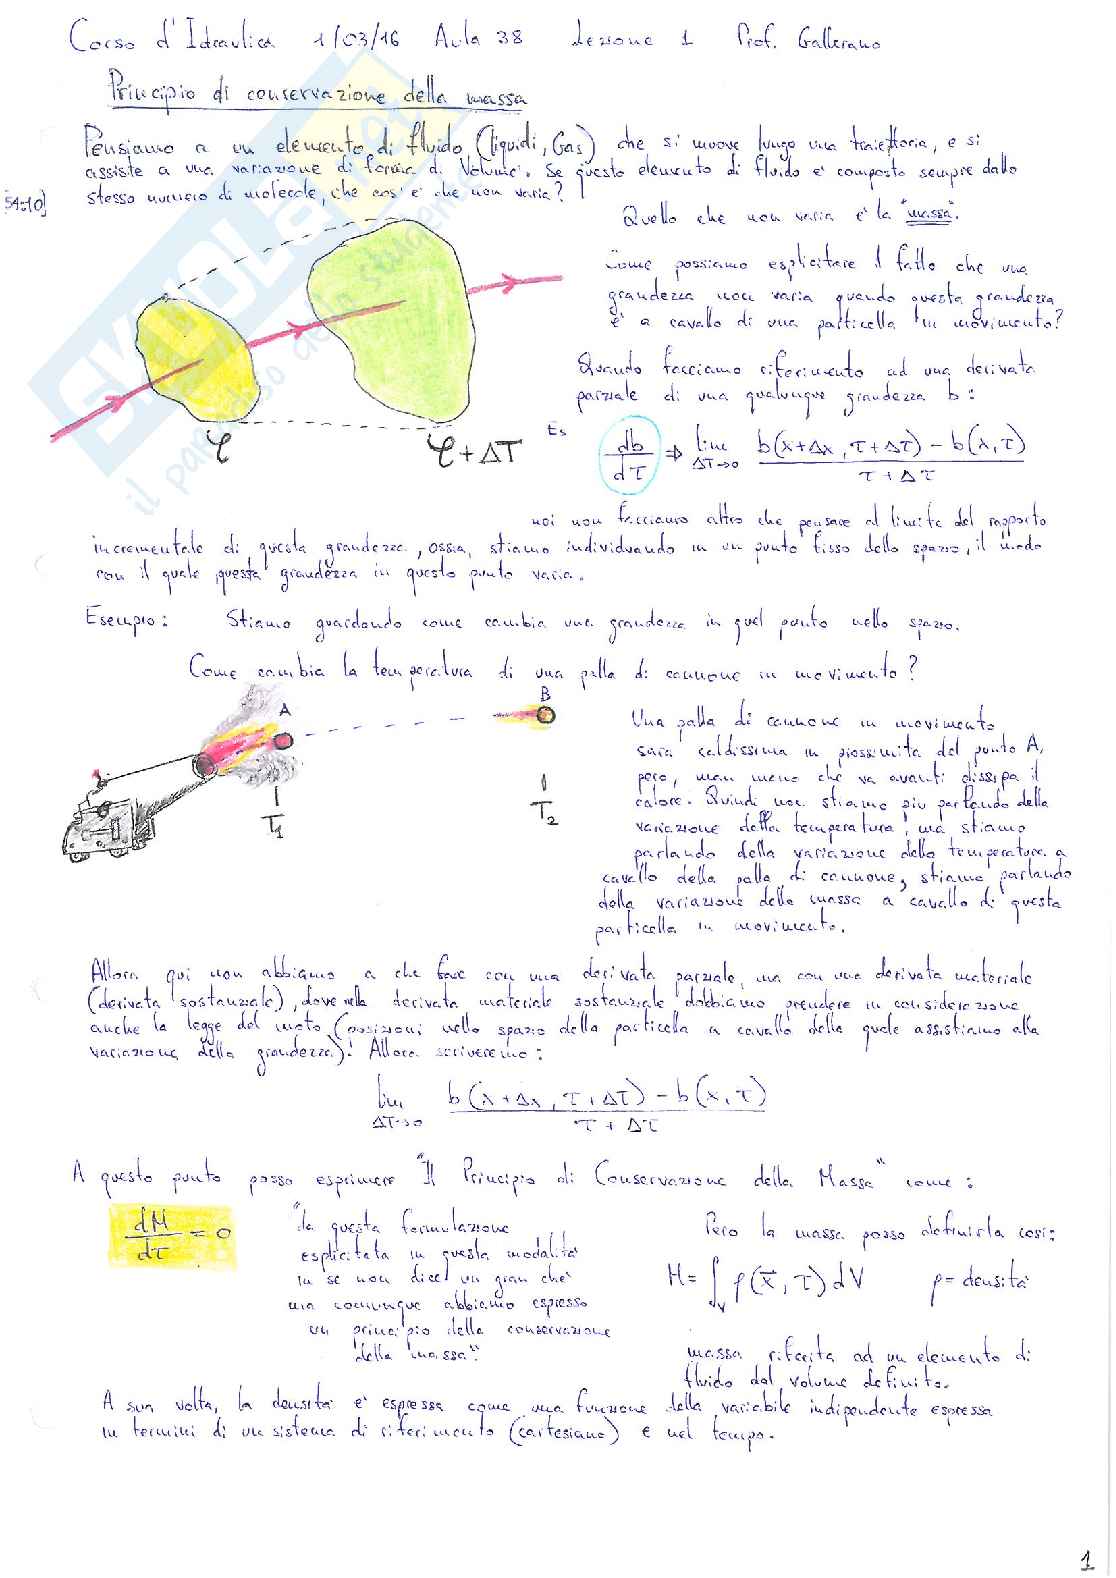 Corso d'Idraulica 1/03/16 Aula 38 Lezione 1 Prof. Gallerano
Principio di conservazione della massa
Pensiamo a un elemento di fluido (liquidi, Gas) che si muove lungo una traiettoria, e si
assiste a una variazione di forma di Volume. Se questo elemento di fluido e' composto sempre dallo
stesso numero di molecole, che cos' e' che non varia?
[54:10]
Quello che non varia e' la "massa".
Come possiamo esplicitare il fatto che una
grandezza non varia quando questa grandezza
e' a cavallo di una particella in movimento?
Quando facciamo riferimento ad una derivata
parziale di una qualunque grandezza b:
τ
τ + ΔT
Es db/dτ ⇒ lim ΔT→0 b(x+Δx, τ+ΔT) - b(x,τ) / τ+Δτ
noi non facciamo altro che pensare al limite del rapporto
incrementale di questa grandezza, ossia, stiamo individuando in un punto fisso dello spazio, il modo
con il quale questa grandezza in questo punto varia.
Esempio: Stiamo guardando come cambia una grandezza in quel punto nello spazio.
Come cambia la temperatura di una palla di cannone in movimento?
A
B
T1
T2
Una palla di cannone in movimento
sara' caldissima in prossimita' del punto A,
pero', man meno che va avanti dissipa il
calore. Quindi non stiamo piu' parlando della
variazione della temperatura, ma stiamo
parlando della variazione della temperatura a
cavallo della palla di cannone, stiamo parlando
della variazione della massa a cavallo di questa
particella in movimento.
Allora qui non abbiamo a che fare con una derivata parziale, ma con una derivata materiale
(derivata sostanziale), dove nella derivata materiale sostanziale dobbiamo prendere in considerazione
anche la legge del moto (posizioni nello spazio della particella a cavallo della quale assistiamo alla
variazione della grandezza). Allora scriveremo:
lim ΔT→0 b(x+Δx, τ+ΔT) - b(x,τ) / τ+Δτ
A questo punto posso esprimere "Il Principio di Conservazione della Massa" come:
dM/dτ = 0
"da questa formulazione
esplicitata in questa modalita'
in se non dice un gran che'
ma comunque abbiamo espresso
un principio della conservazione
della massa".
Pero' la massa posso definirla cosi:
M = ∫V ρ(x⃗, τ) dV ρ = densita'
massa riferita ad un elemento di
fluido dal volume definito.
A sua volta, la densita' e' espressa come una funzione della variabile indipendente espressa
in termini di un sistema di riferimento (cartesiano) e nel tempo.
1
SKUOLA.net
il paradiso dello studente